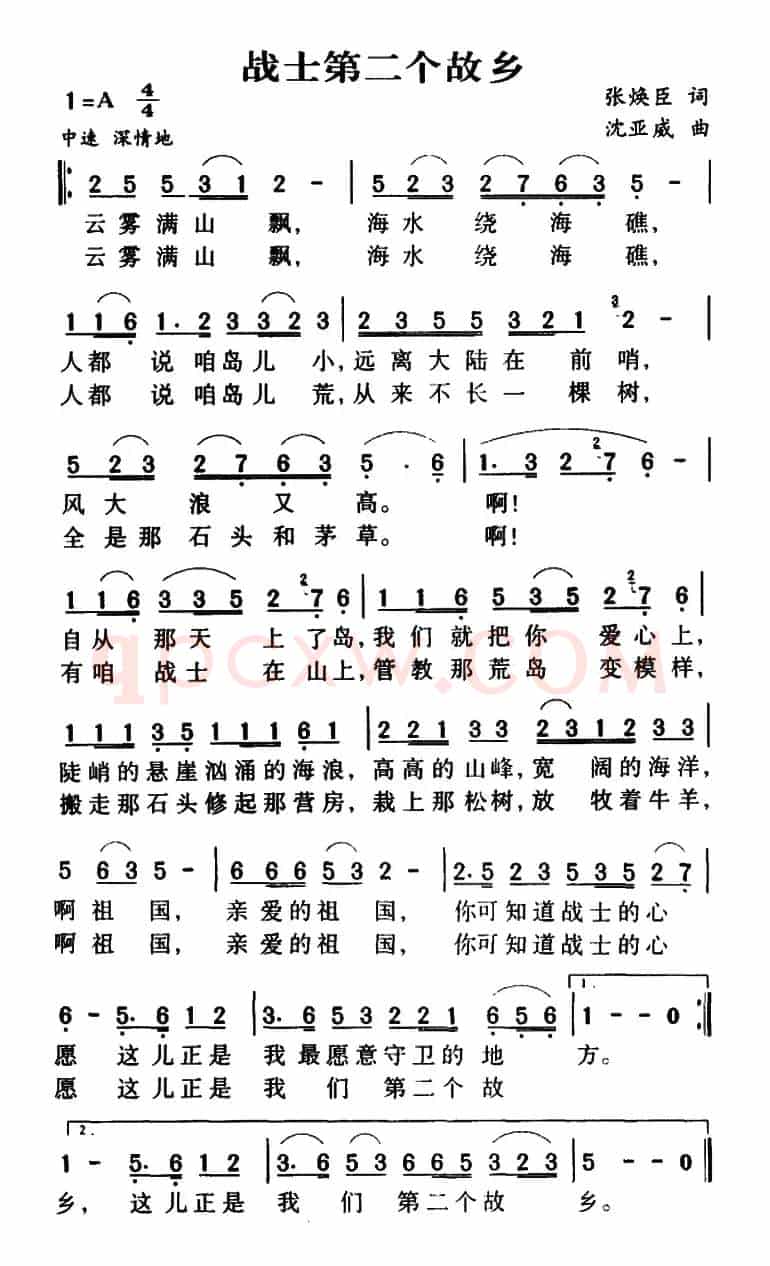 战士第二个故乡
1=A 4/4
张焕臣 词
中速 深情地
沈亚威 曲
2 5 5 3 1 2 - | 5 2 3 2 7 6 3 5 - |
云雾满山飘, 海水绕海礁,
云雾满山飘, 海水绕海礁,
1 1 6 1. 2 3 3 2 3 | 2 3 5 5 3 2 1 3 2 - |
人都说咱岛儿小,远离大陆在前哨,
人都说咱岛儿荒,从来不长一棵树,
5 2 3 2 7 6 3 5 . 6 | 1. 3 2 2 7 6 - |
风大浪又高。 啊!
全是那石头和茅草。 啊!
1 1 6 3 3 5 2 2 7 6 | 1 1 6 5 3 5 2 2 7 6 |
自从那天上了岛,我们就把你爱心上,
有咱战士在山上,管教那荒岛变模样,
qpcxw.COM
1 1 1 3 5 1 1 1 6 1 | 2 2 1 3 3 2 3 1 2 3 3 |
陡峭的悬崖汹涌的海浪,高高的山峰,宽阔的海洋,
搬走那石头修起那营房,栽上那松树,放牧着牛羊,
5 6 3 5 - | 6 6 6 5 3 2 - | 2. 5 2 3 5 5 3 2 7 |
啊祖国, 亲爱的祖国, 你可知道战士的心
啊祖国, 亲爱的祖国, 你可知道战士的心
1.
6 - 5. 6 1 2 | 3. 6 5 3 2 2 1 6 5 6 | 1 - - 0 :|
愿这儿正是我最愿意守卫的地方。
愿这儿正是我们第二个故
2.
1 - 5. 6 1 2 | 3. 6 5 3 6 6 5 3 2 3 | 5 - - 0 ‖
乡, 这儿正是我们第二个故乡。